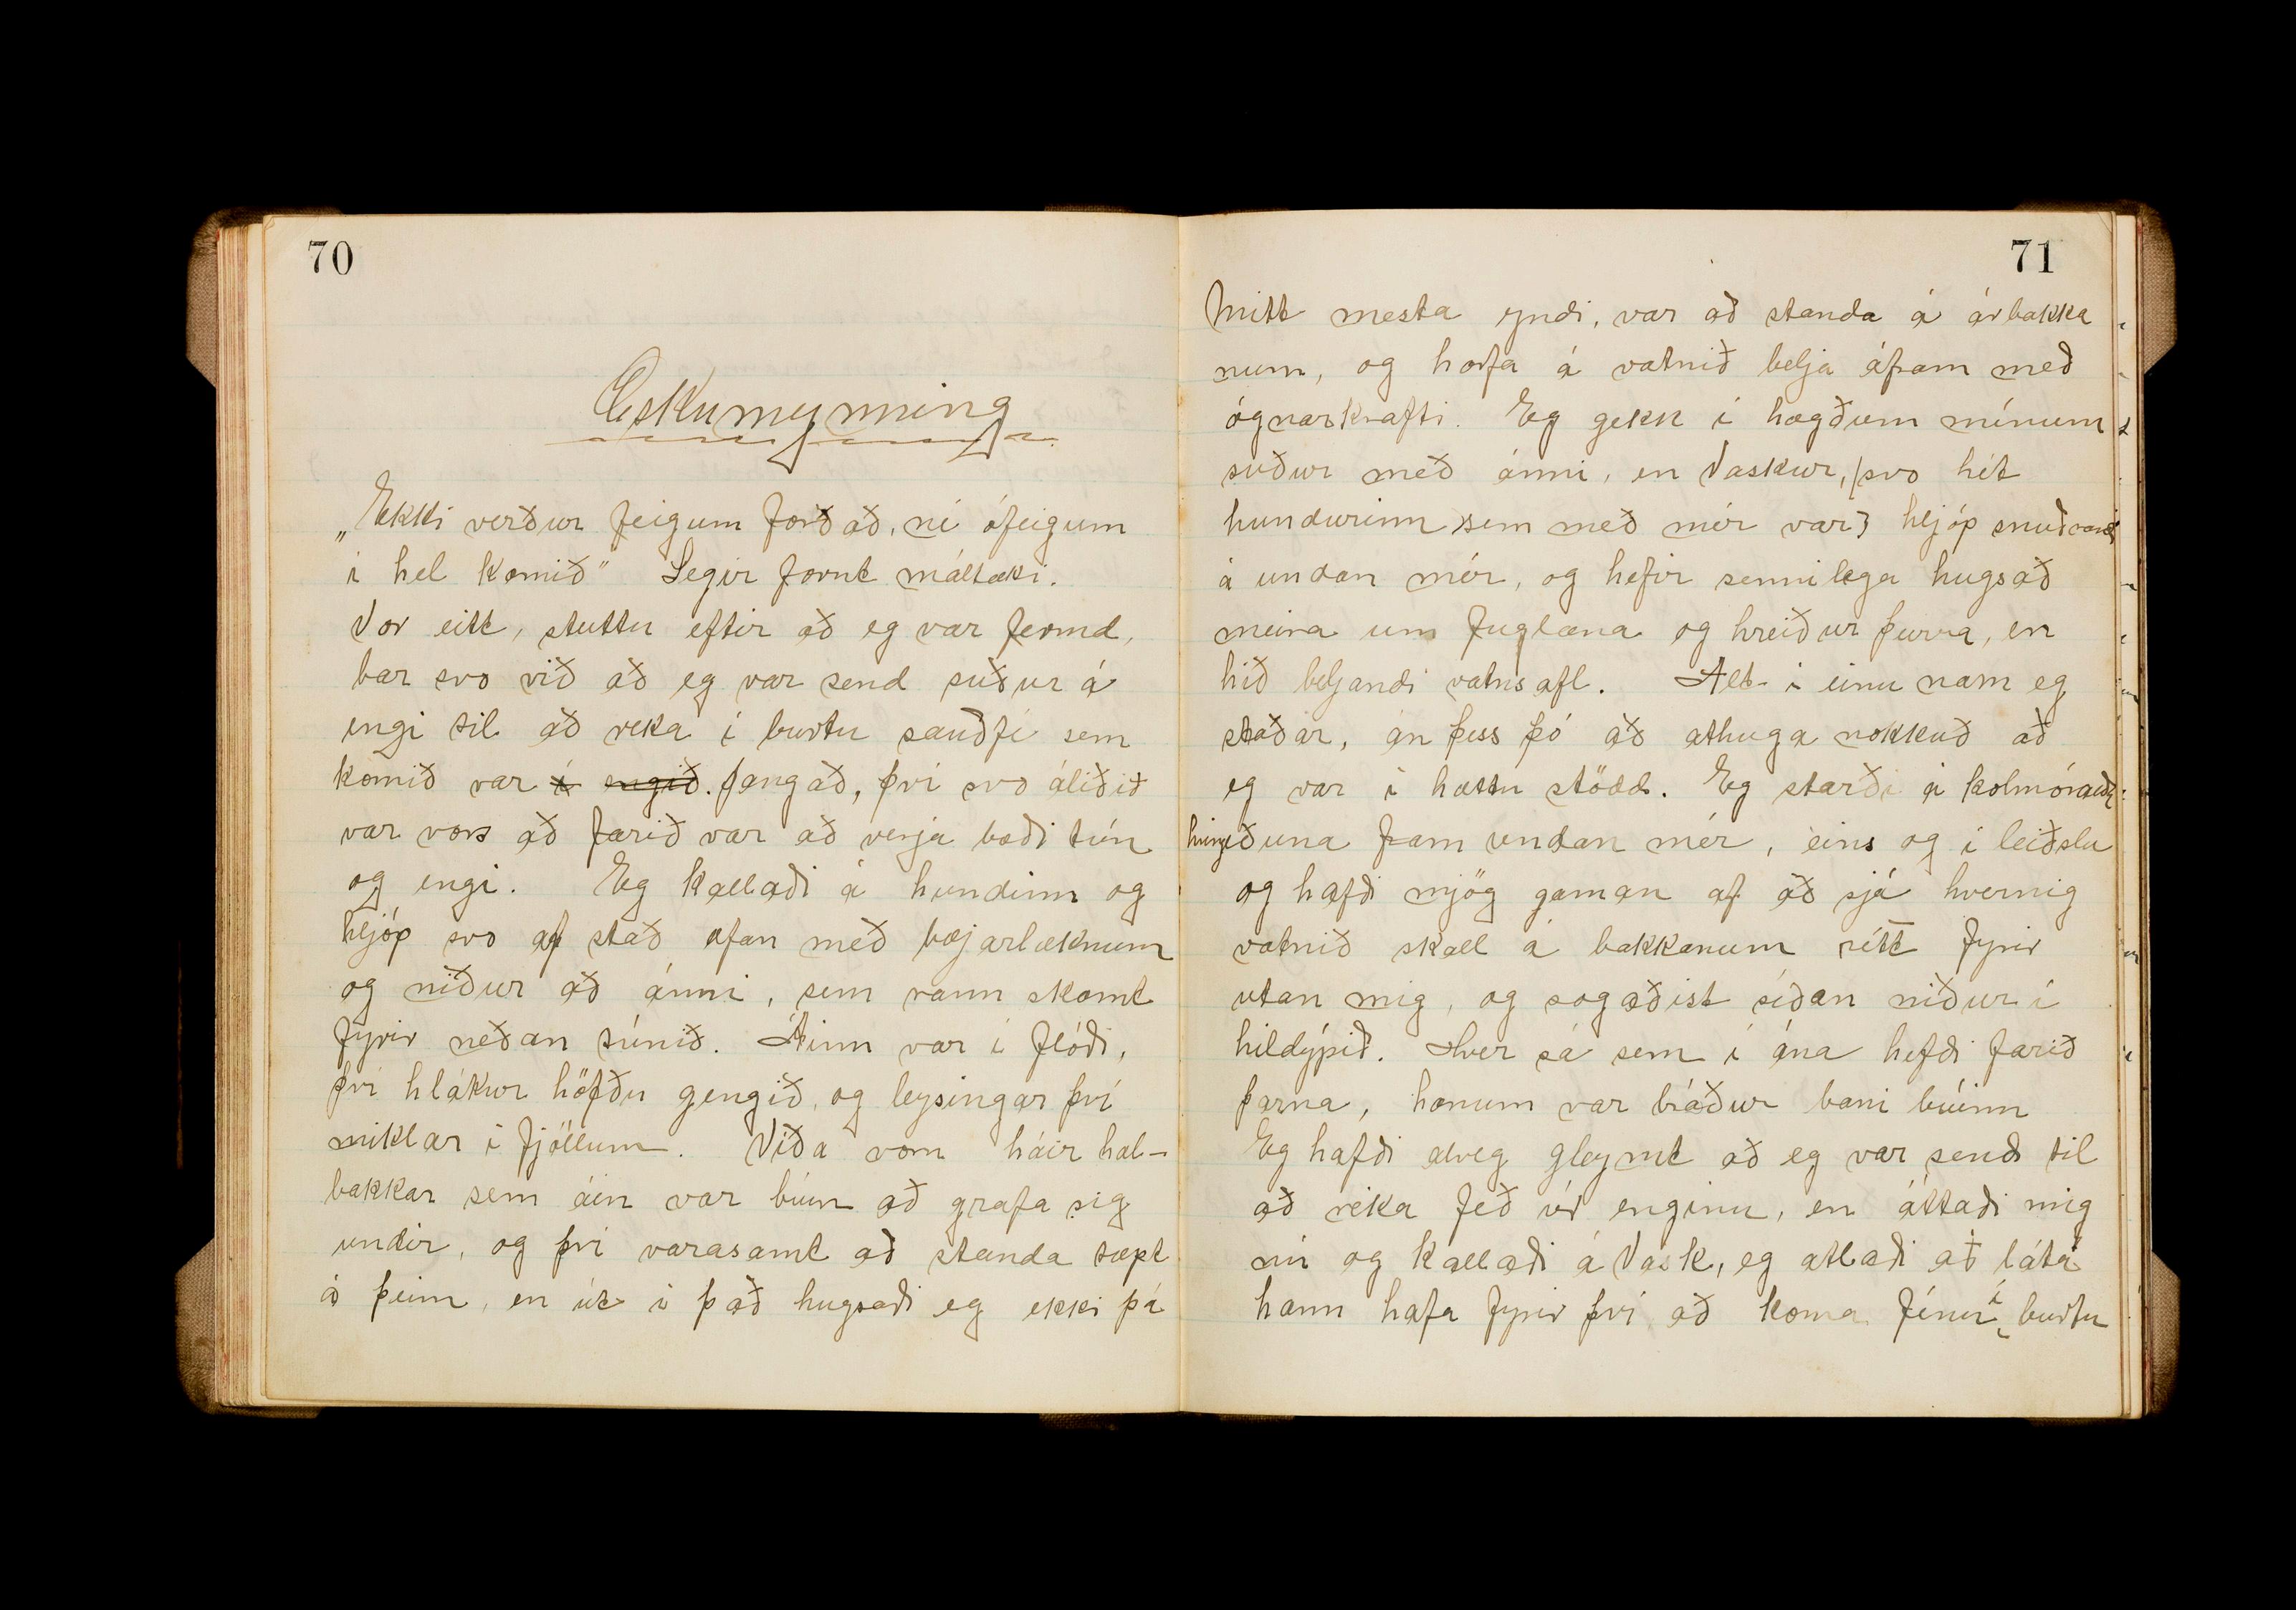 70
Eskumynning
„Ekki verður feigum forðað, né ófeigum
í hel komið" Segir fornt máltæki.
Vor eitt, stuttu eftir að eg var fermd,
bar svo við að eg var send suður á
engi til að reka í burtu sauðfé sem
komið var í engið. þangað, því svo áliðið
var vors að farið var að verja bæði tún
og engi. Eg kallaði á hundinn og
hljóp svo af stað ofan með bæjarlæknum
og niður að ánni, sem rann skamt
fyrir neðan túnið. Áinn var í flóði,
því hlákur höfðu gengið, og leysingar því
miklar í fjöllum. Víða vom háir hol-
bakkar sem áin var búin að grafa sig
undir, og því varasamt að standa tæpt
á þeim, en út í það hugsaði eg ekki þá
71
Mitt mesta yndi, var að standa á árbakka
num, og horfa á vatnið belja áfram með
ógnarkrafti. Eg gekk í hægðum mínum
suður með ánni, en Vaskur, (svo hét
hundurinn sem með mér var) hljóp snuðrandi
á undan mér, og hefir sennilega hugsað
meira um fuglana og hreiður þurra, en
hið beljandi vatnsafl. Alt í einu nam eg
staðar, án þess þó að athuga nokkuð að
eg var í hættu stödd. Eg starði á kolmórauða
hringiðuna fram undan mér, eins og í leiðslu
og hafði mjög gaman af að sjá hvernig
vatnið skall á bakkanum rétt fyrir
utan mig, og sogaðist síðan niður í
hildýpið. Hver sá sem í ána hefði farið
þarna, honum var bráður bani búinn
Eg hafði alveg gleymt að eg var send til
að reka féð úr enginu, en áttaði mig
nú og kallaði á Vask, eg ætlaði að láta
hann hafa fyrir því að koma fénu í burtu